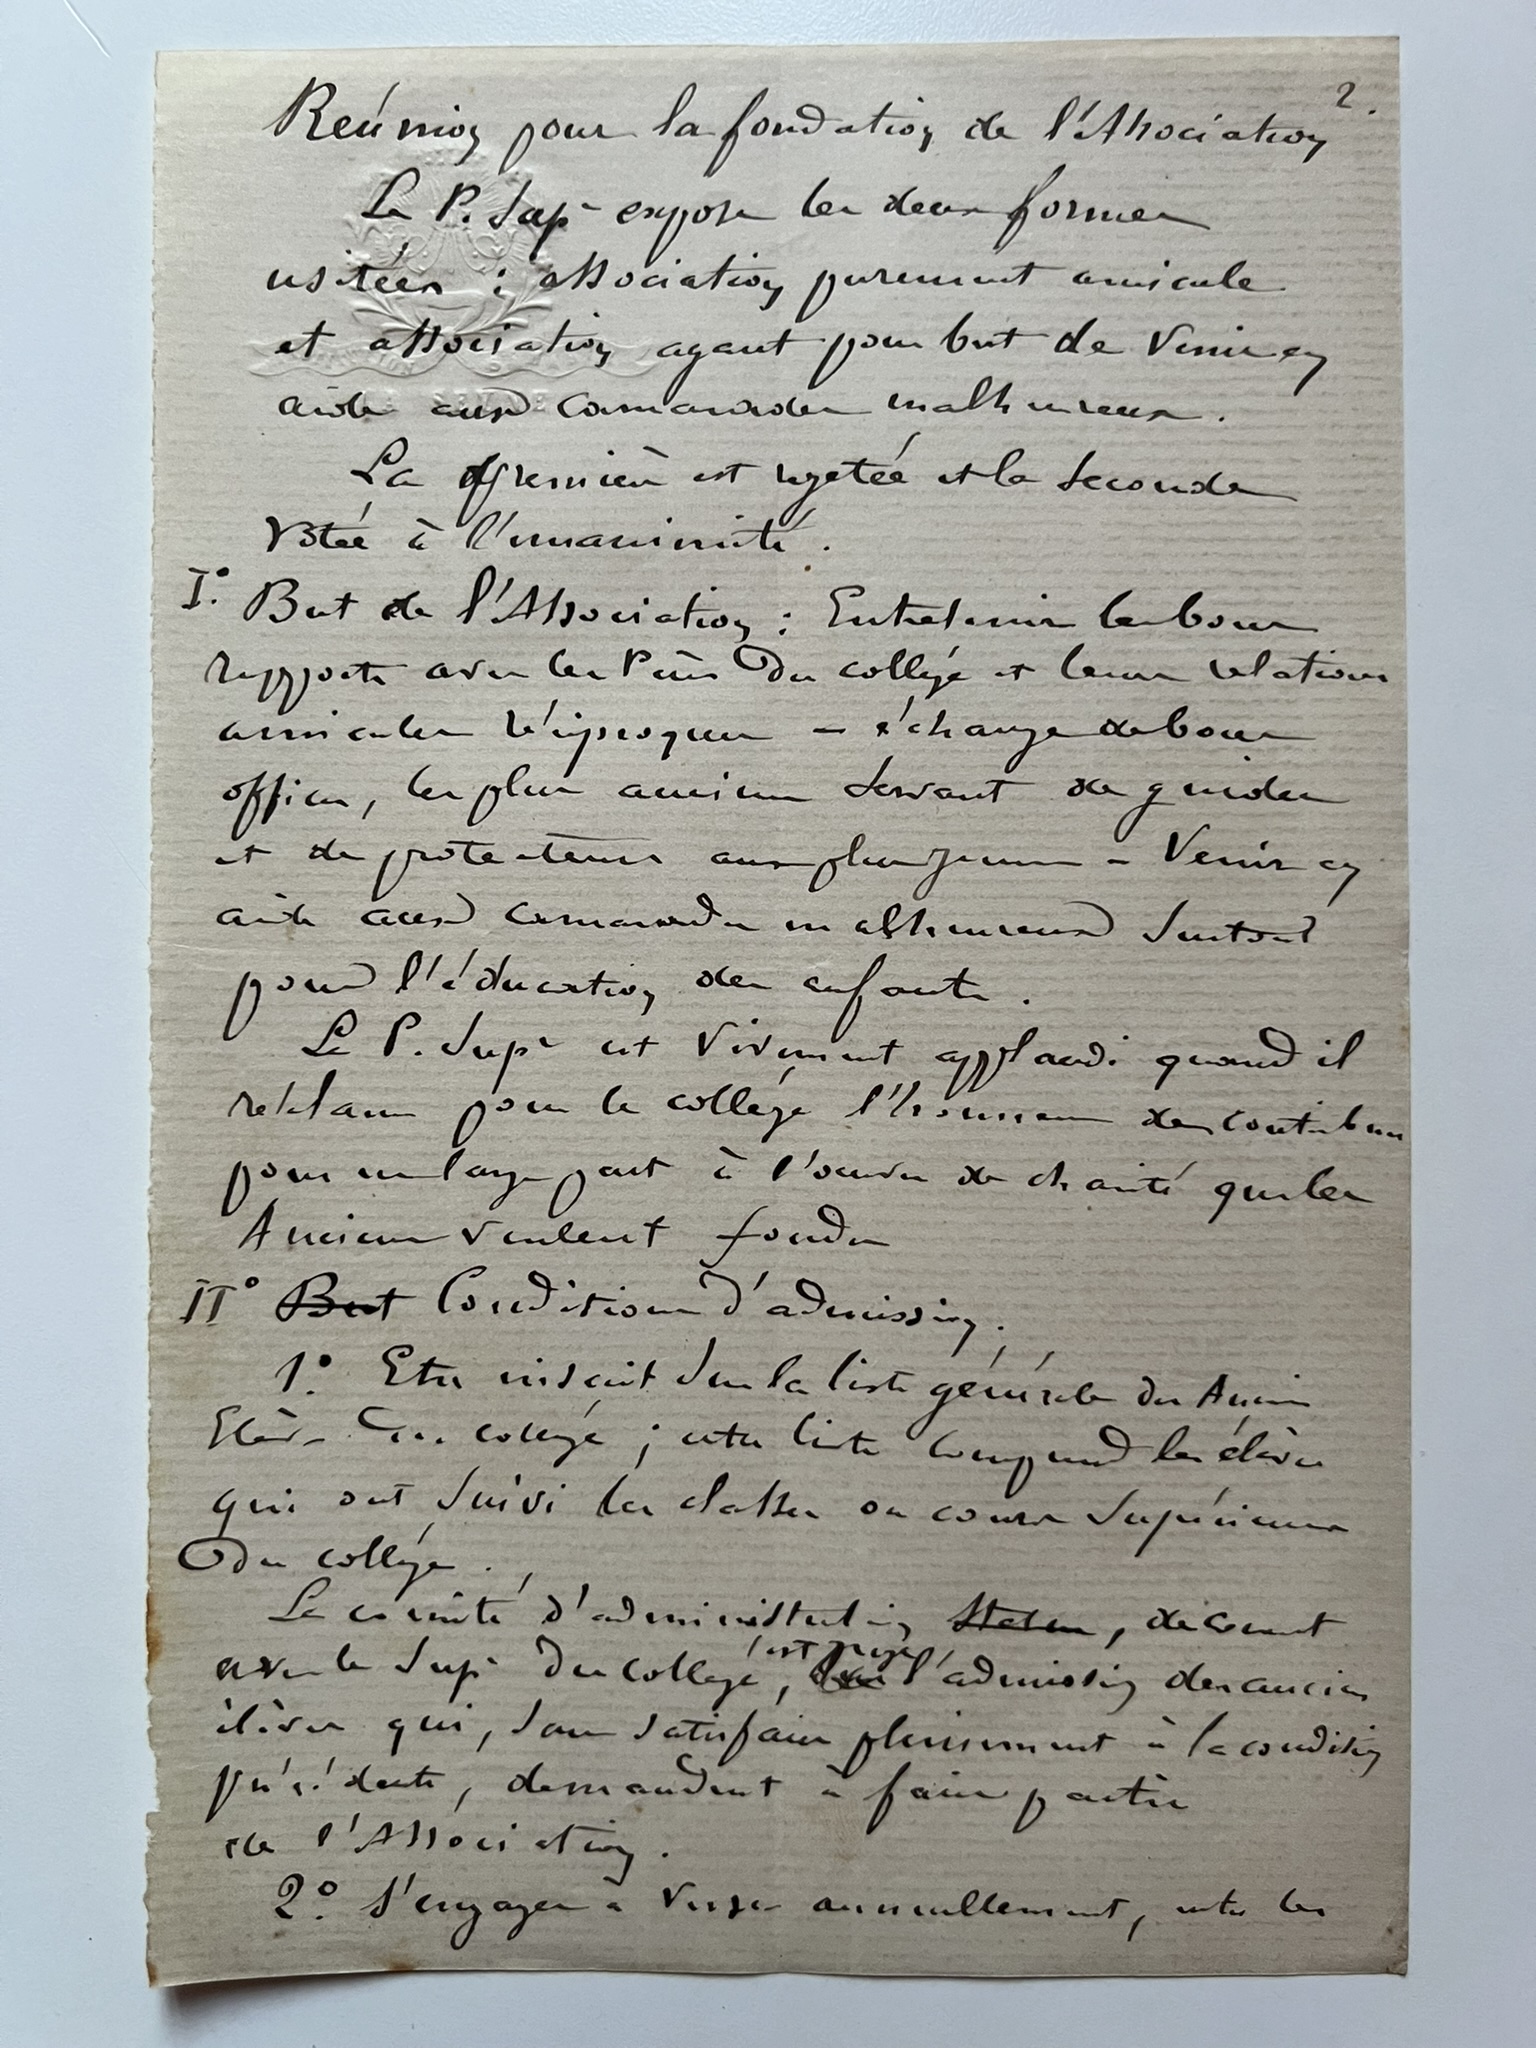 2.
Reúnion pour la fondation de l'Association
Le P. Supr expose les deux formes
usitées : association purement amicale
et association ayant pour but de Venir en
aide aux camarades malheureux.
La première est rejetée et la seconde
Votée à l'unanimité.
I° But de l'Association : Entretenir les bons
rapports avec les Pères du collége et leurs relations
amicales réciproques - échange de bons
offices, les plus anciens servant de guides
et de protecteurs aux plus jeunes - Venir en
aide aux camarades malheureux surtout
pour l'éducation des enfants.
Le P. Supr est vivement applaudi quand il
réclame pour le collége l'honneur de contribuer
pour une large part à l'œuvre de charité que les
Anciens veulent fonder
II° But Conditions d'admission.
1° Etre inscrit sur la liste générale des Anciens
Elèves du collége ; cette liste comprend les élèves
qui ont suivi les classes ou cours supérieurs
du collége.
Le comité d'administration, de concert
avec le Supr du collége, est juge
l'admission des anciens
élèves qui, sans satisfaire pleinement à la condition
précédente, demandent à faire partie
de l'Association.
2° S'engager à verser annuellement, entre les